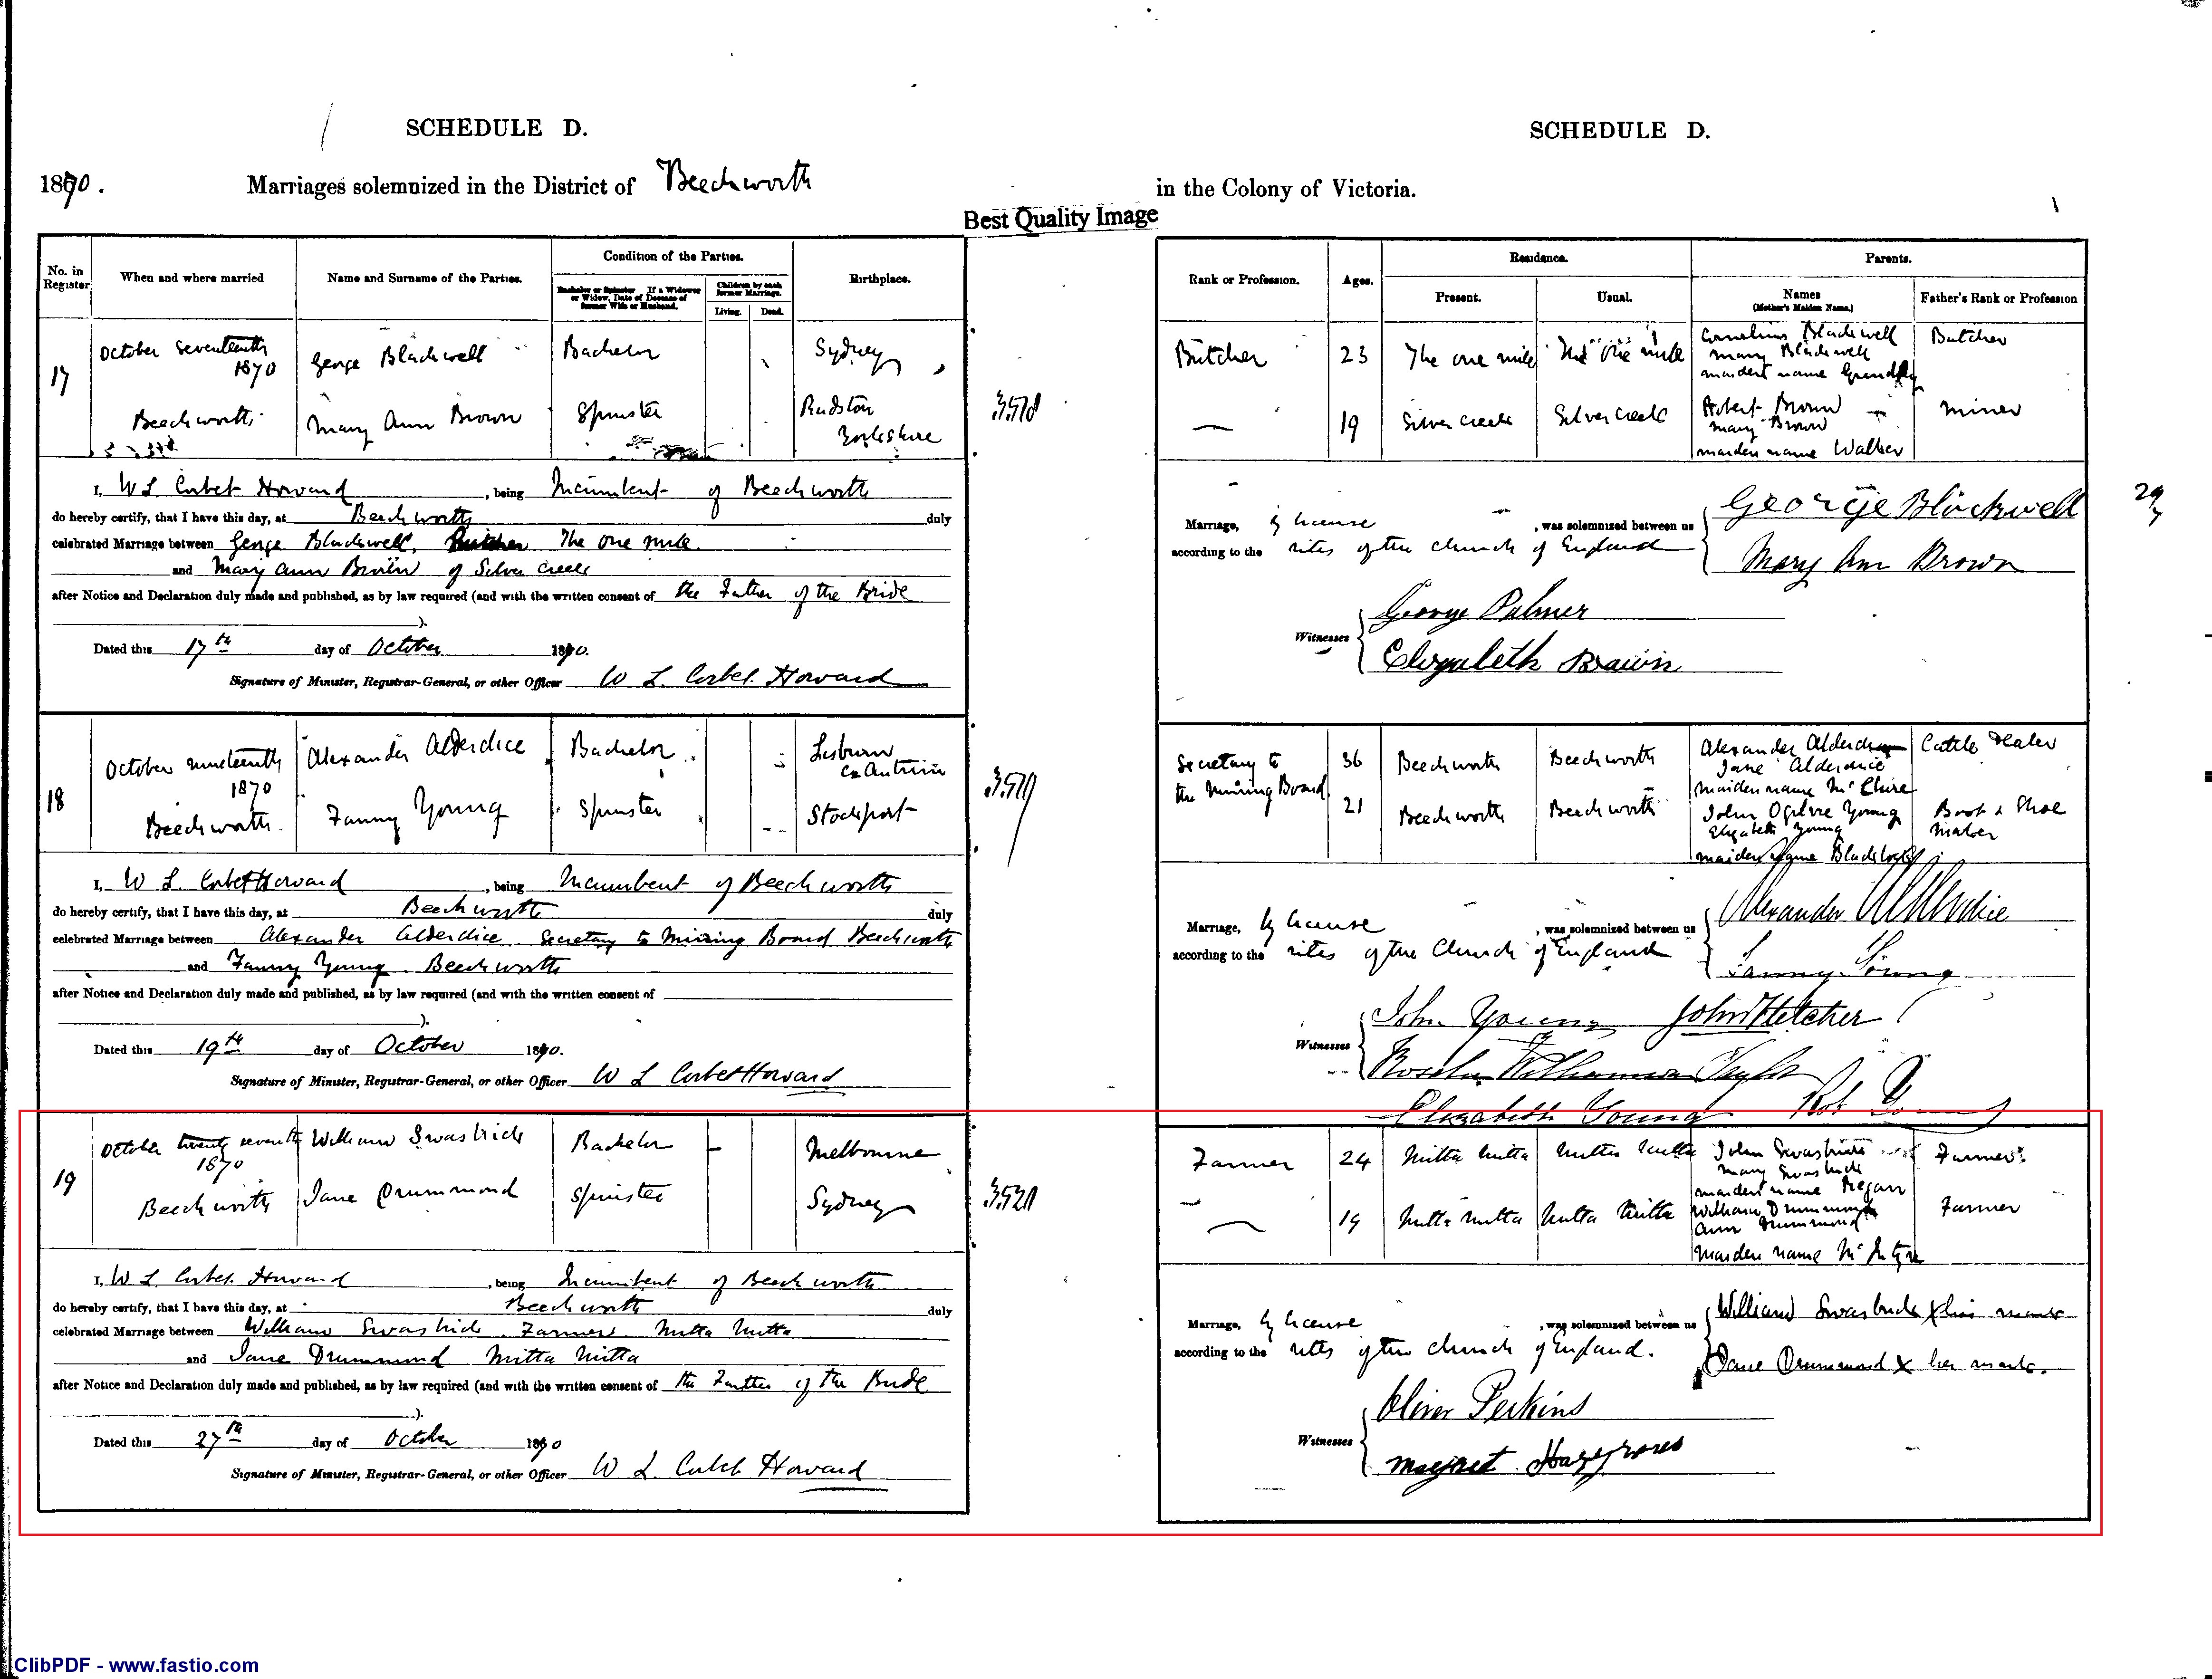 SCHEDULE D.
1870. Marriages solemnized in the District of Beechworth
Best Quality Image
No. in Register
When and where married
Name and Surname of the Parties.
Condition of the Parties.
Bachelor or Spinster. If a Widower or Widow, Date of Decease of former Wife or Husband.
Children by each former Marriage.
Living. Dead.
Birthplace.
17
October seventeenth George Blackwell Bachelor Sydney
1870
Beechworth Mary Ann Brown Spinster Rudston
Yorkshire
3518
I, W L Corbet Howard, being Incumbent of Beechworth
do hereby certify, that I have this day, at Beechworth duly
celebrated Marriage between George Blackwell, Butcher The one mile
and Mary Ann Brown of Silver Creek
after Notice and Declaration duly made and published, as by law required (and with the written consent of the Father of the Bride
).
Dated this 17th day of October 1870.
Signature of Minister, Registrar-General, or other Officer W L Corbet Howard
18
October nineteenth Alexander Alderdice Bachelor Lisburn
Co Antrim
1870
Beechworth. Fanny Young Spinster Stockport
3519
I, W L Corbet Howard, being Incumbent of Beechworth
do hereby certify, that I have this day, at Beechworth duly
celebrated Marriage between Alexander Alderdice Secretary to Mining Board Beechworth
and Fanny Young Beechworth
after Notice and Declaration duly made and published, as by law required (and with the written consent of
).
Dated this 19th day of October 1870.
Signature of Minister, Registrar-General, or other Officer W L Corbet Howard
19
October twenty seventh William Bachelor Melbourne
1870
Beechworth Jane Drummond Spinster Sydney
3520
I, W L Corbet Howard, being Incumbent of Beechworth
do hereby certify, that I have this day, at Beechworth duly
celebrated Marriage between William Farmer Mitta Mitta
and Jane Drummond Mitta Mitta
after Notice and Declaration duly made and published, as by law required (and with the written consent of the Father of the Bride
).
Dated this 27th day of October 1870
Signature of Minister, Registrar-General, or other Officer W L Corbet Howard
SCHEDULE D.
in the Colony of Victoria.
Rank or Profession.
Ages.
Residence.
Present. Usual.
Parents.
Names
(Mother's Maiden Name.)
Father's Rank or Profession
Butcher 23 The one mile The one mile Cornelius Blackwell Butcher
Mary Blackwell
maiden name
19 Silver Creek Silver Creek Robert Brown Miner
Mary Brown
maiden name Walker
Marriage, by license, was solemnized between us George Blackwell
according to the rites of the Church of England Mary Ann Brown
Witnesses George Palmer
Elizabeth Brown
29
Secretary to
the Mining Board 36 Beechworth Beechworth Alexander Alderdice Cattle Dealer
Jane Alderdice
maiden name McClure
21 Beechworth Beechworth John Ogilvie Young Boot & Shoe
Elizabeth Young maker
maiden name
Marriage, by license, was solemnized between us Alexander Alderdice
according to the rites of the Church of England Fanny Young
Witnesses John Young John Fletcher
Taylor
Elizabeth Young Robt Young
Farmer 24 Mitta Mitta Mitta Mitta John Farmer
Mary
maiden name Regan
19 Mitta Mitta Mitta Mitta William Drummond Farmer
Ann Drummond
maiden name McIntyre
Marriage, by license, was solemnized between us William x his mark
according to the rites of the Church of England. Jane Drummond x her mark.
Witnesses Oliver Perkins
Margret Hargroves
ClibPDF - www.fastio.com